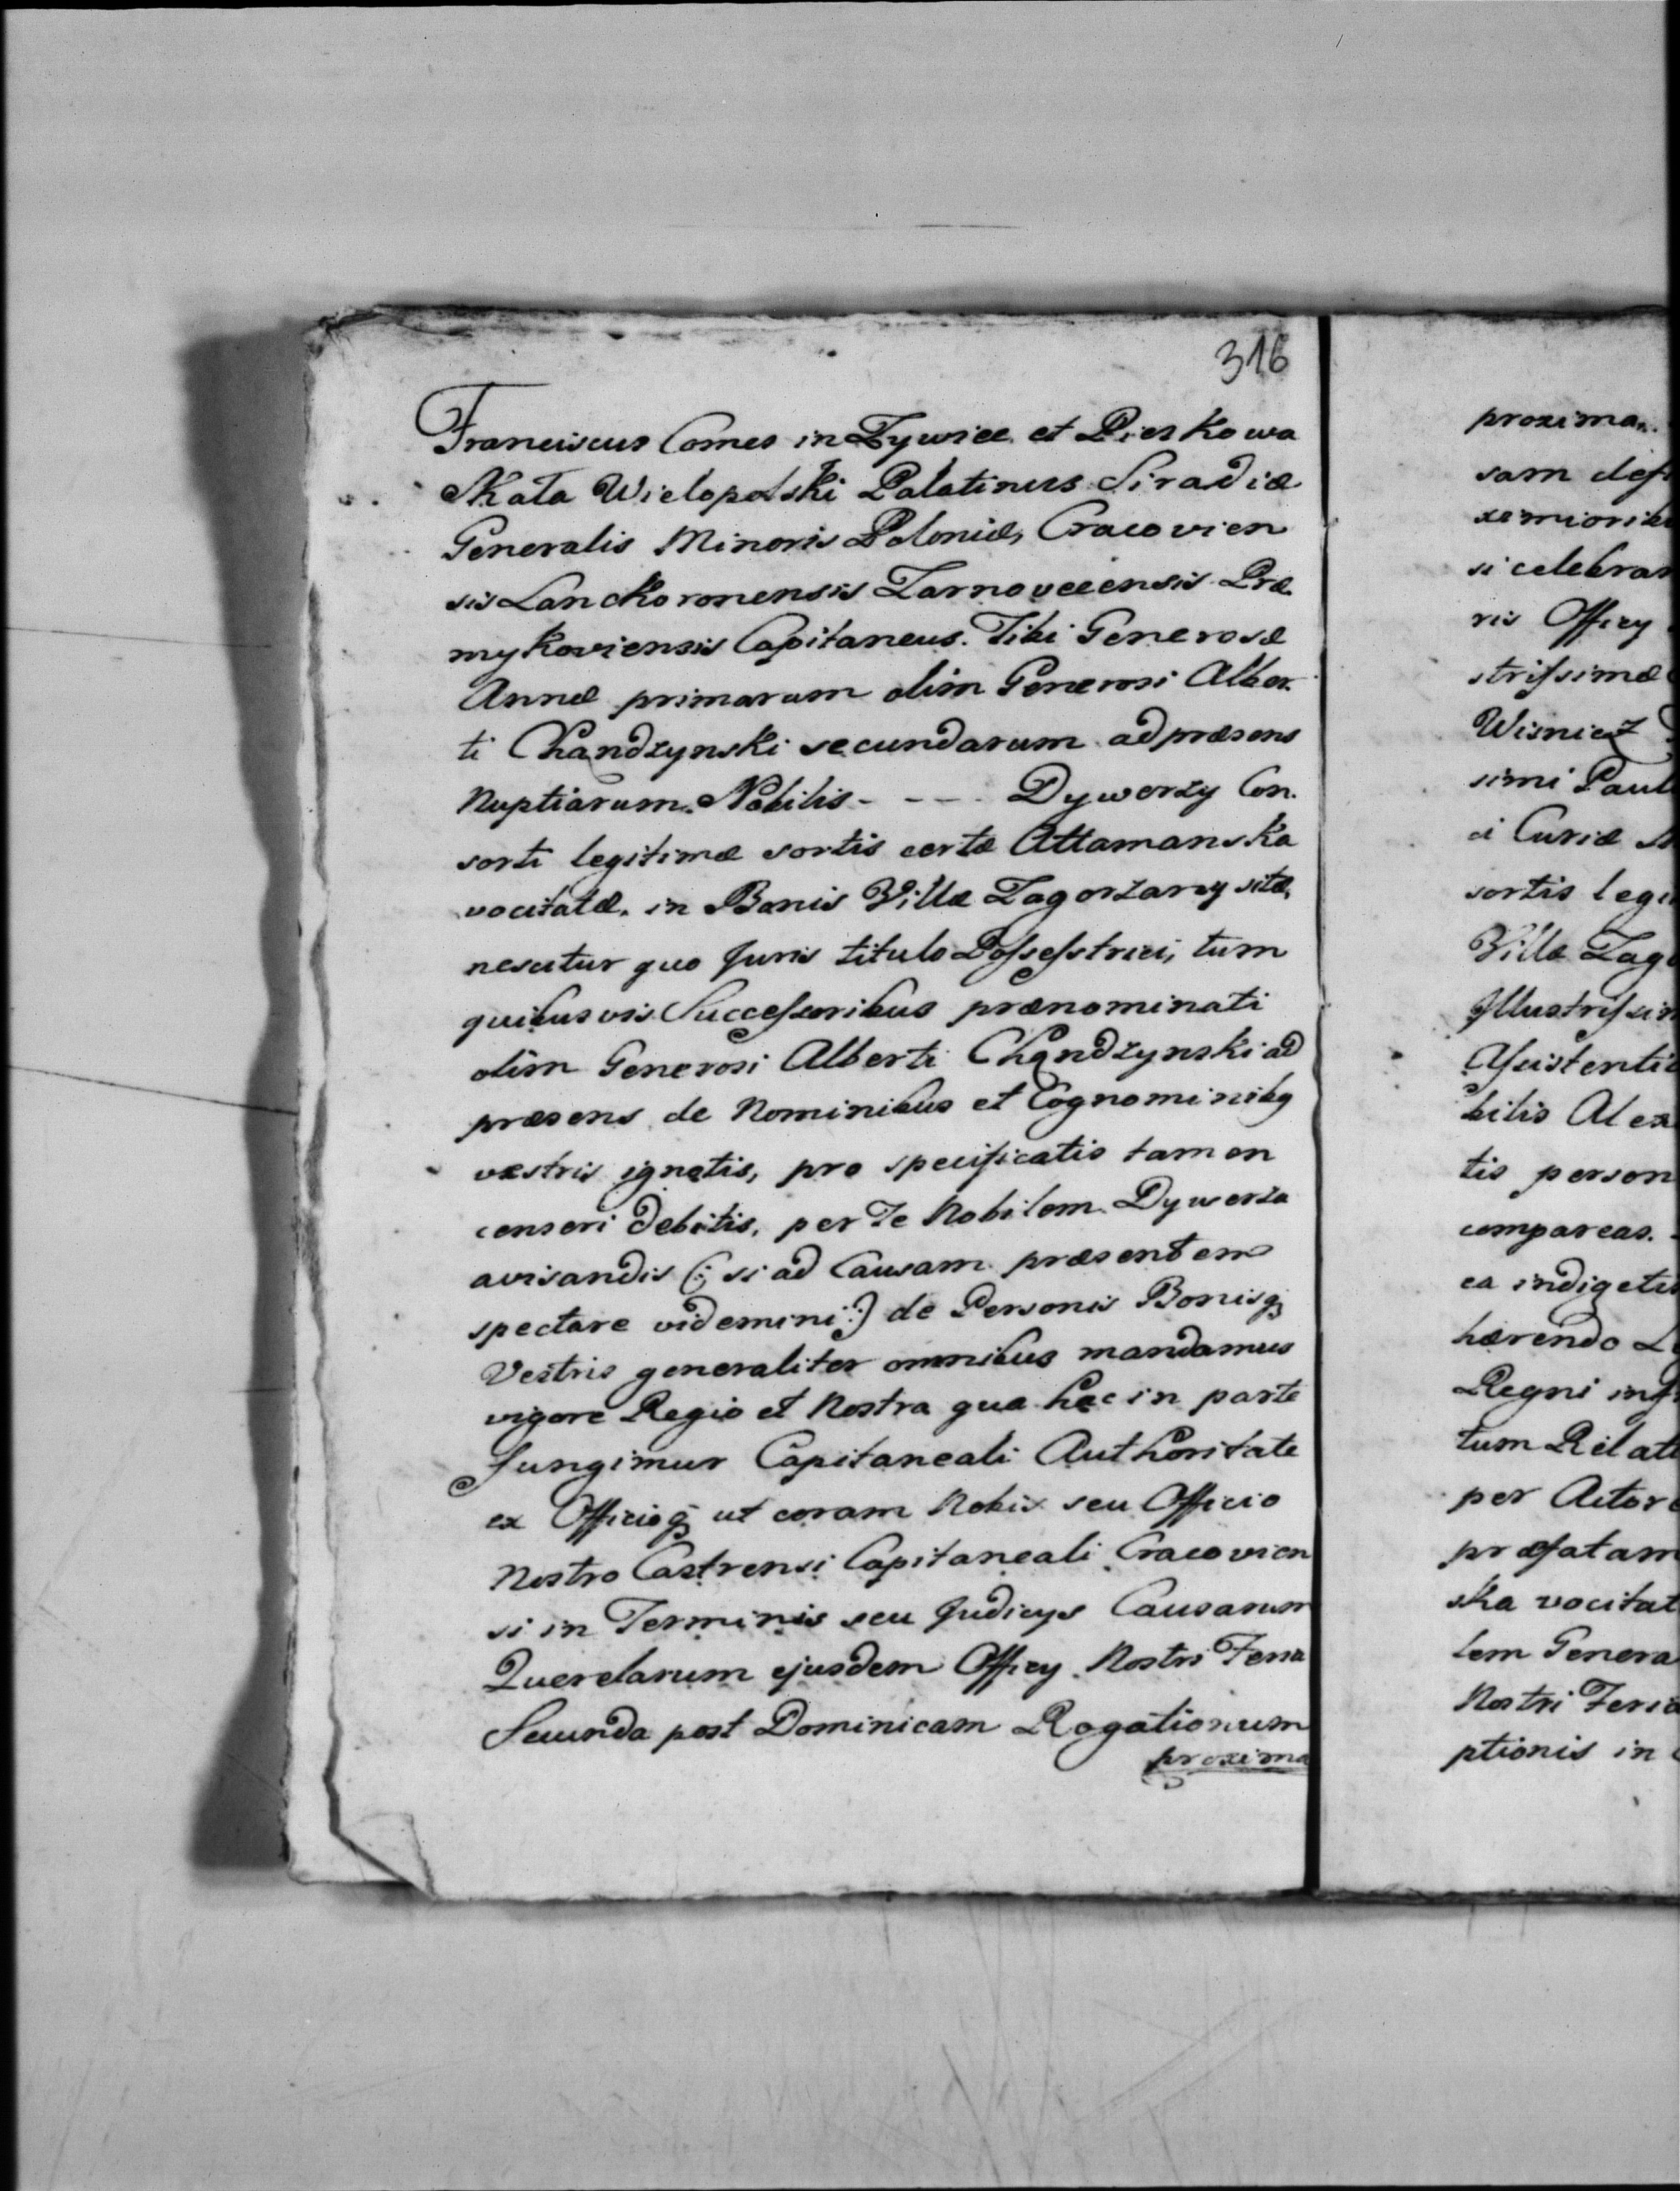 316
Franciscus Comes in Zywiec et Pieskowa
Skała Wielopolski Palatinus Siradiæ
Generalis Minoris Poloniæ, Cracovien
sis Lanckoronensis Zarnoveeensis Præ
mykoviensis Capitaneus. Tibi Generosæ
Annæ primarum olim Generosi Alber
ti Chandzynski secundarum ad præsens
Nuptiarum Nobilis - - - - Dyworzy Con.
sorti legitimæ sortis certæ Attamanska
vocitatæ, in Bonis Villæ Zagorzany sitæ,
nescitur quo Juris titulo Possesstrici, tum
quibusvis Successoribus prænominati
olim Generosi Alberti Chandzynski ad
præsens de Nominibus et Cognominibq
vestris ignotis, pro specificatis tamen
censeri debitis, per Te Nobilem Dyworza
avisandis (: si ad Causam præsentem
spectare videmini :) de Personis Bonisq;
Vestris generaliter omnibus mandamus
vigore Regio et Nostra qua hac in parte
fungimur Capitaneali Authoritate
ex Officioq; ut coram Nobis seu Officio
Nostro Castrensi Capitaneali Cracovien
si in Terminis seu Judicijs Causarum
Querelarum ejusdem Officy Nostri Feria
Secunda post Dominicam Rogationum
proxima
proxima
sam def
ximiorib
si celebran
ris Officy
strissimæ
Wisnicz
simi Paul
ci Curiæ
sortis legi
Villæ Zag
Illustrissim
Assistenti
bilis Alex
tis person
compareas.
ea indigeti
hærendo
Regni inf
tum Relat
per Actor
præfatam
ska vocitat
lem Genera
Nostri Feria
ptionis in